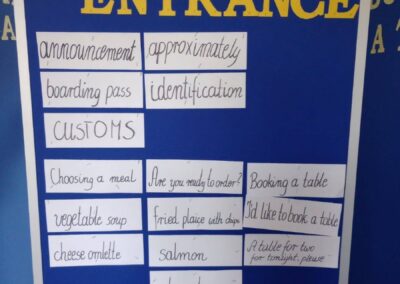 ENTRANCE
announcement
approximately
boarding pass
identification
CUSTOMS
Choosing a meal
Are you ready to order?
Booking a table
vegetable soup
fried plaice with chips
I'd like to book a table
cheese omlette
salmon
A table for two
for tonight, please
A